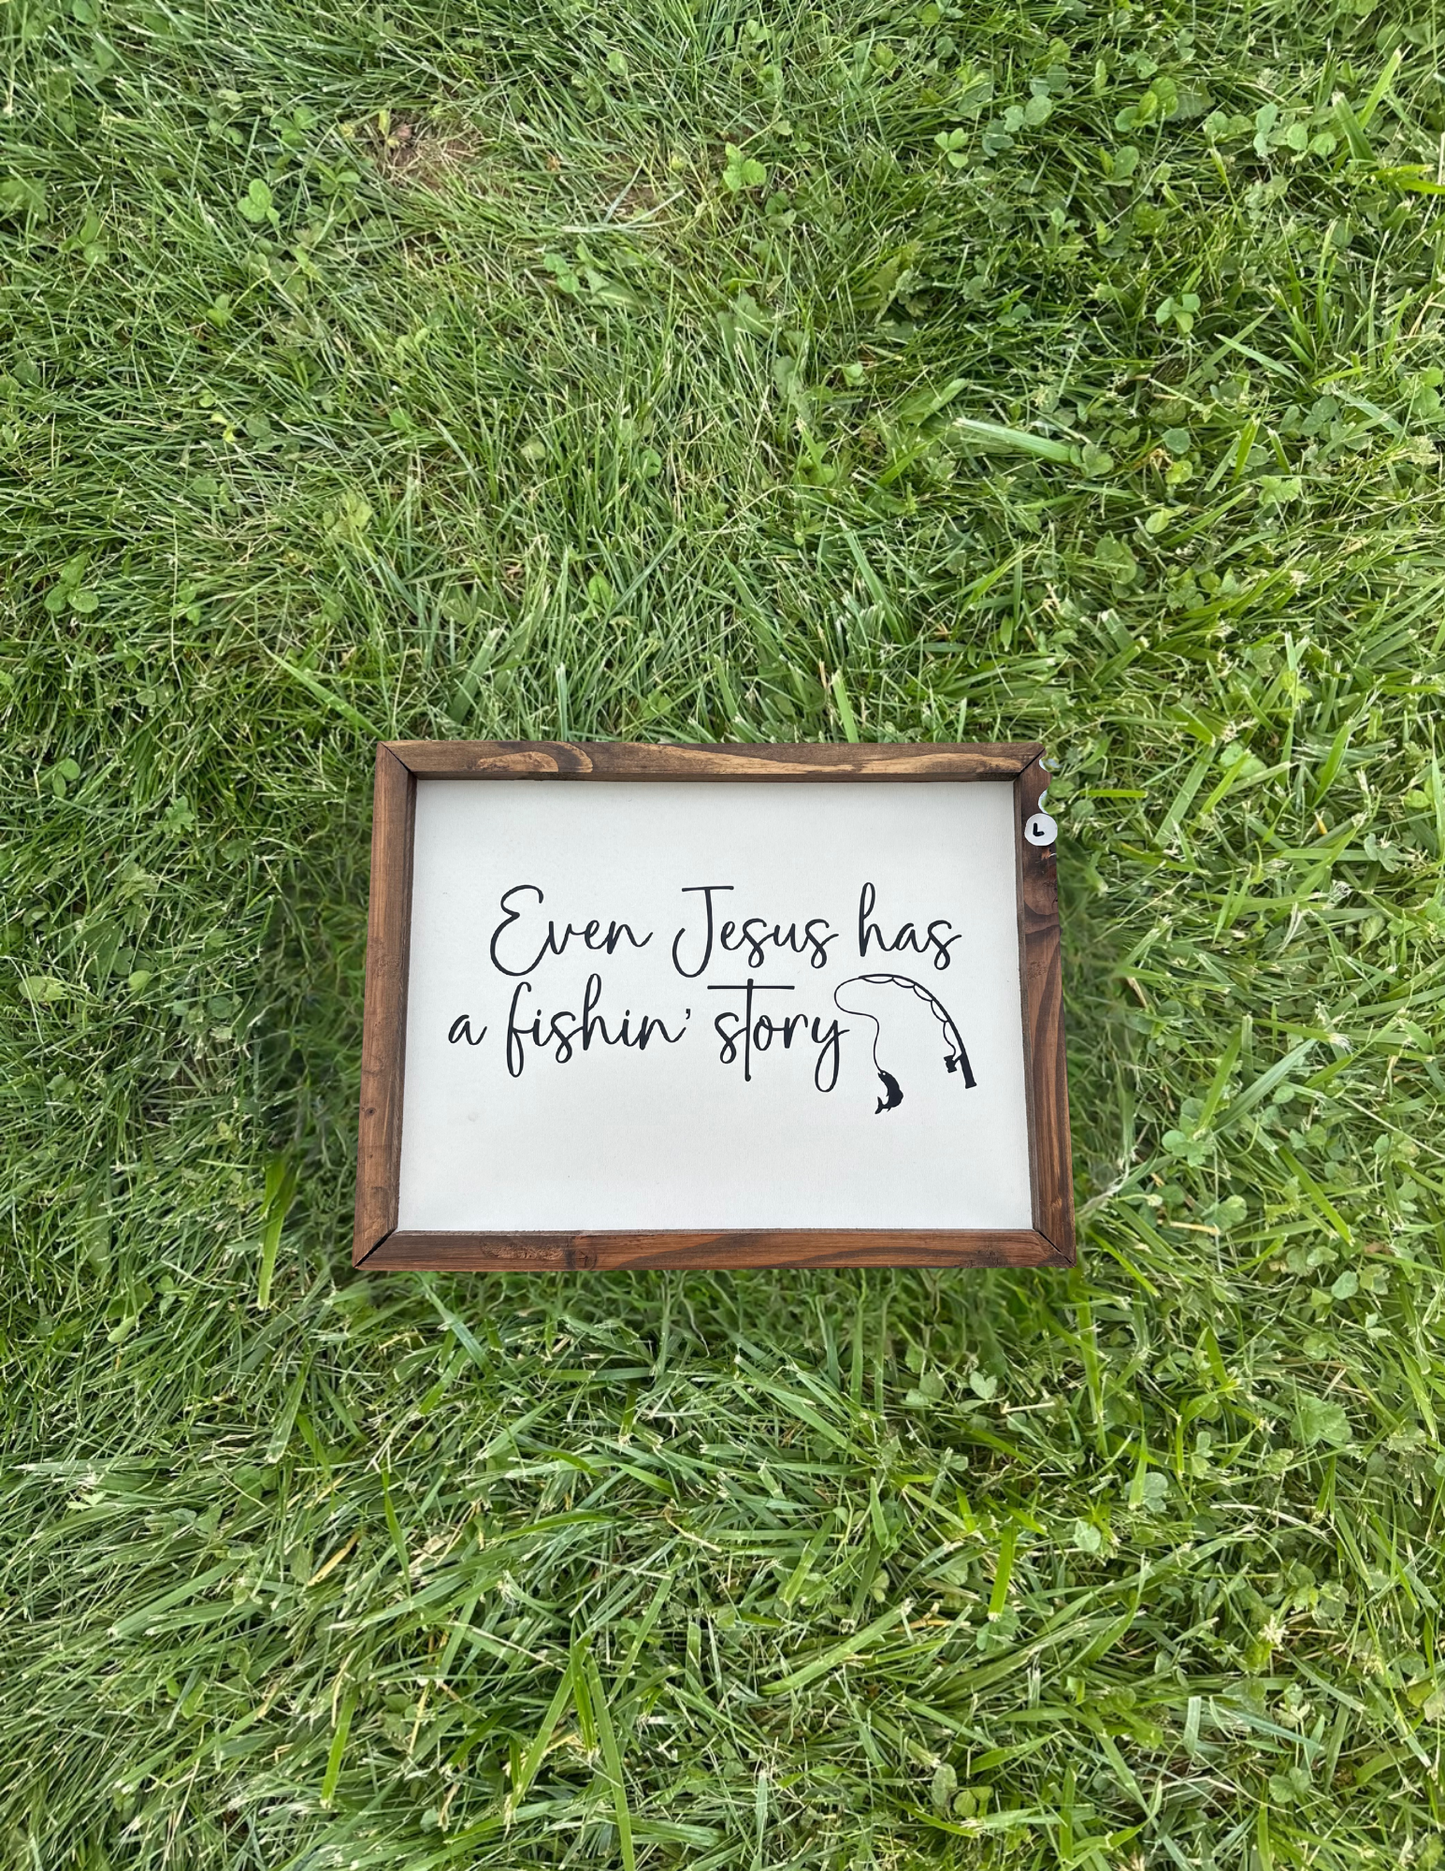 L
Even Jesus has
a fishin' story